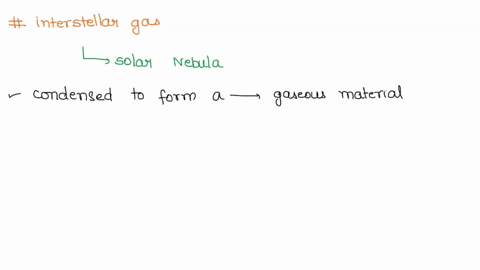 # interstellar gas
↳ solar Nebula
✓ condensed to form a → gaseous material